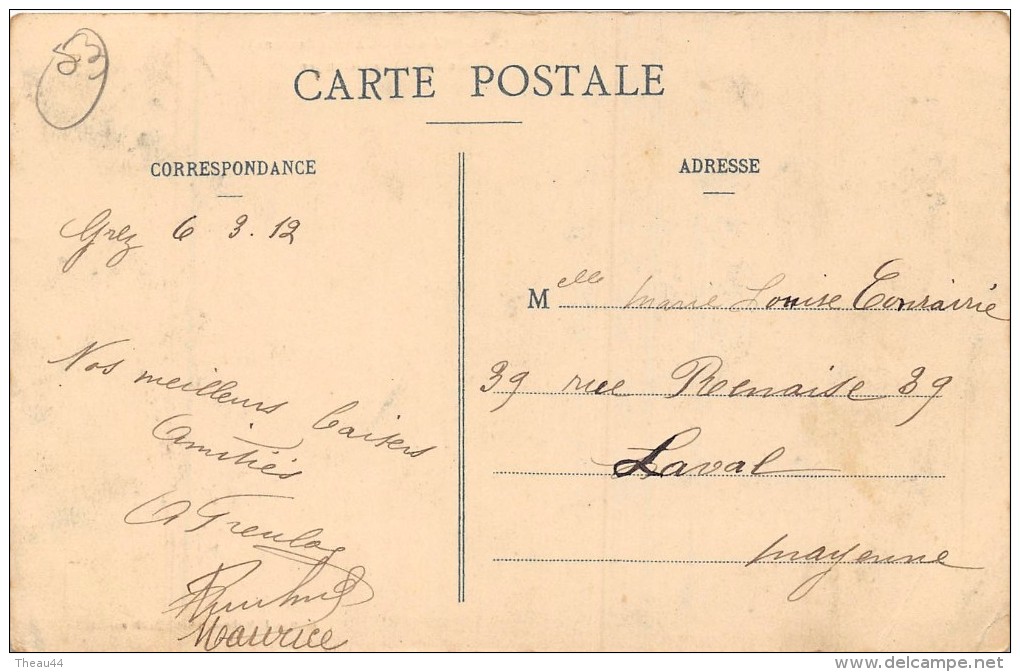 53
CARTE POSTALE
CORRESPONDANCE
Grez 6 3. 12
Nos meilleurs baisers
Amitiés
Maurice
ADRESSE
Melle Marie Louise
39 rue Renaise 39
Laval
Mayenne
Theau44
www.delcampe.net